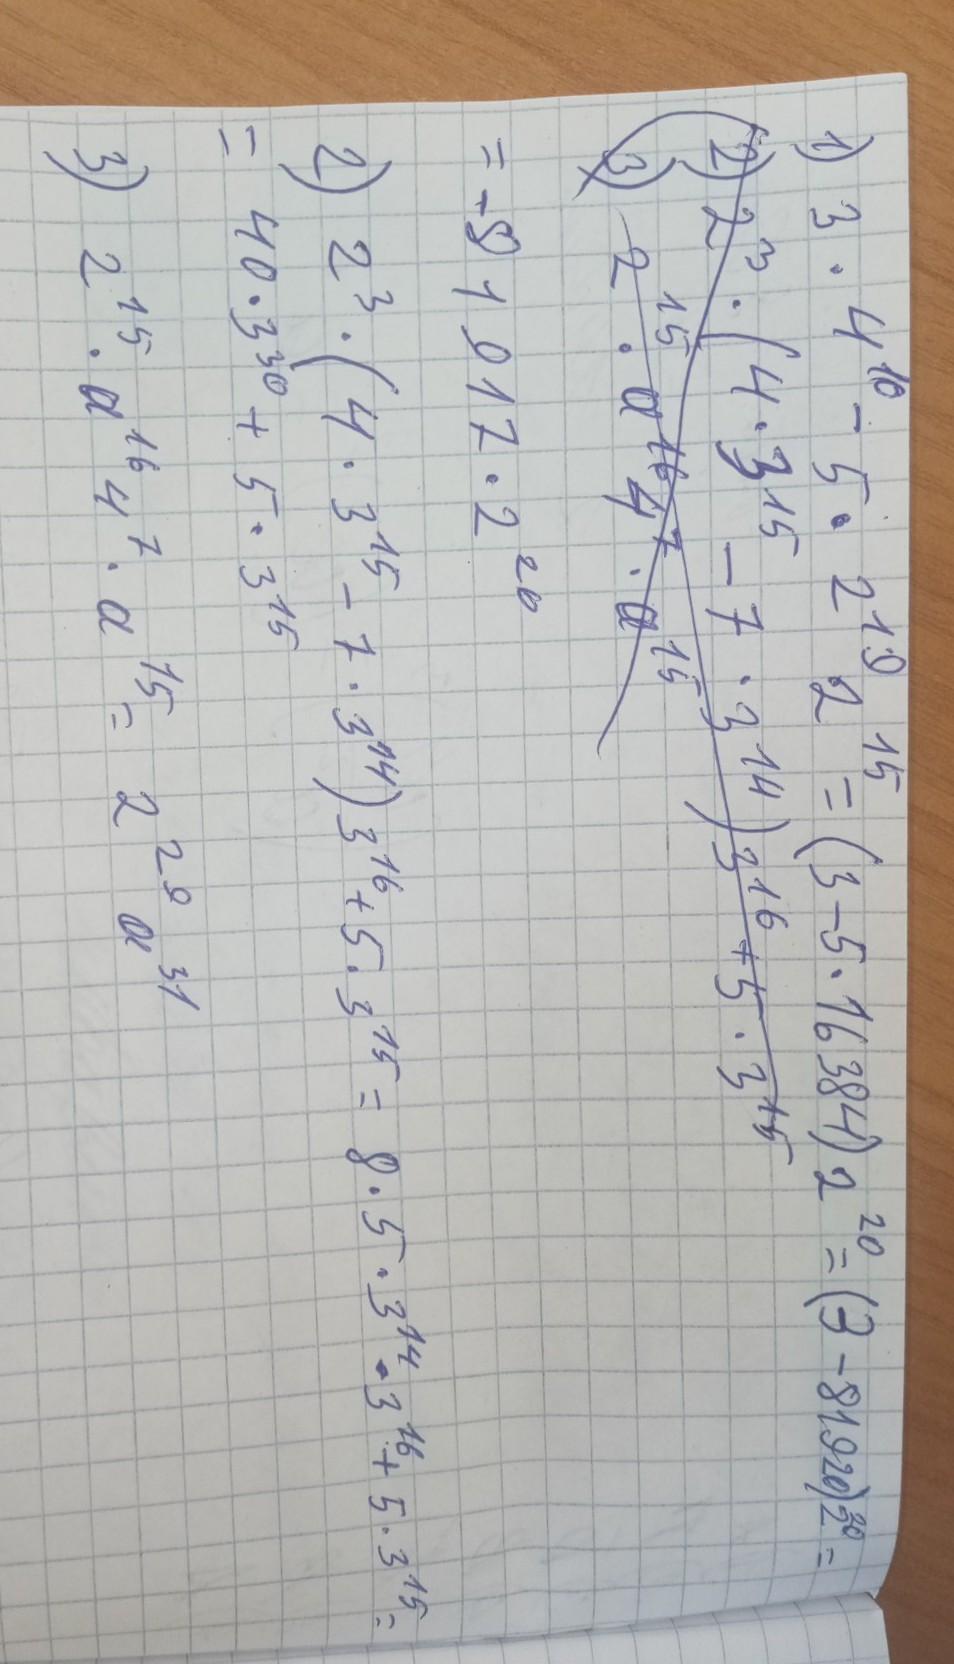 1) 3 · 4¹⁰ - 5 · 2¹⁹ 2¹⁵ = (3 - 5 · 16384) 2²⁰ = (3 - 81920) 2²⁰ =
2) 2³ · (4 · 3¹⁵ - 7 · 3¹⁴) 3¹⁶ + 5 · 3¹⁵
3) 2¹⁵ · a¹⁶ 4⁷ · a¹⁵
= -81917 · 2²⁰
2) 2³ · (4 · 3¹⁵ - 7 · 3¹⁴) 3¹⁶ + 5 · 3¹⁵ = 8 · 5 · 3¹⁴ · 3¹⁶ + 5 · 3¹⁵ =
= 40 · 3³⁰ + 5 · 3¹⁵
3) 2¹⁵ · a¹⁶ 4⁷ · a¹⁵ = 2²⁹ a³¹